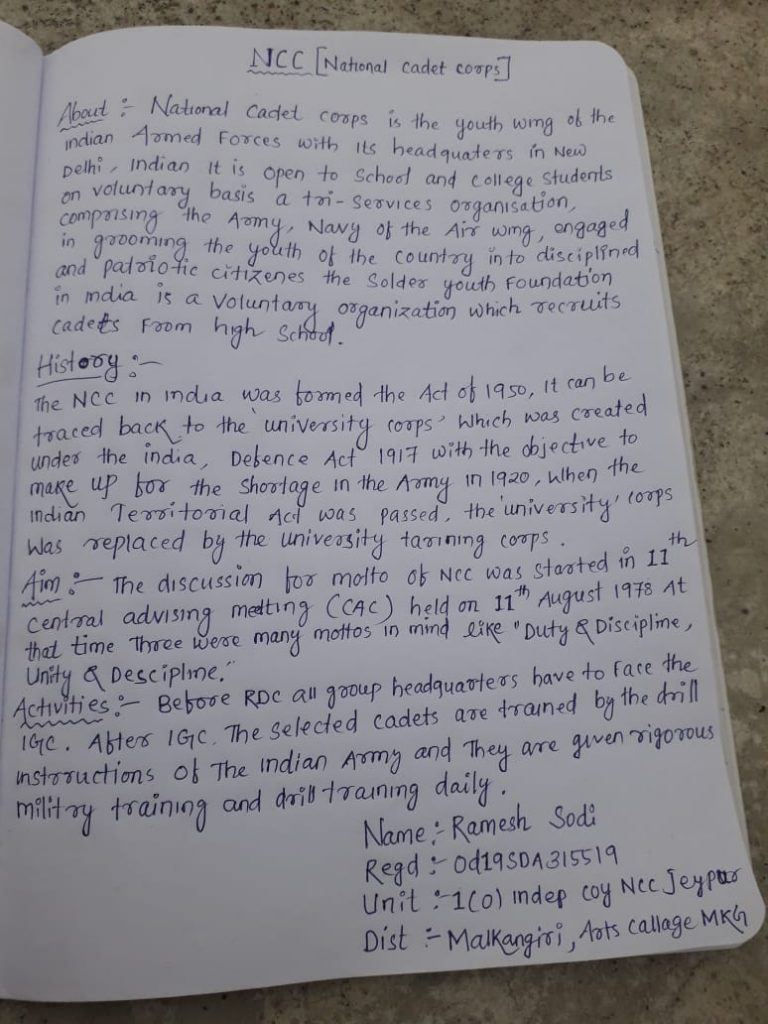 NCC [National cadet corps]
About :- National Cadet corps is the youth wing of the
indian Armed Forces with Its headquaters in New
Delhi, Indian It is open to School and college students
on voluntary basis a tri-services organisation,
comprising the Army, Navy of the Air wing, engaged
in grooming the youth of the country into disciplined
and patriotic citizenes the Solder youth Foundation
in india is a voluntary organization which recruits
cadets From high School.
History :-
The NCC in india was formed the Act of 1950, It can be
traced back to the 'university corps' Which was created
under the india, Defence Act 1917 with the objective to
make up for the shortage in the Army in 1920, When the
indian Territorial Act was passed, the 'university' corps
Was replaced by the university tarining corps.
Aim :- The discussion for molto of NCC was started in 11th
central advising metting (CAC) held on 11th August 1978 At
that time Three were many mottos in mind like "Duty & Discipline,
Unity & Descipline."
Activities :- Before RDC all group headquarters have to Face the
IGC. After IGC. The selected cadets are trained by the drill
instructions of The indian Army and They are given rigorous
militry training and drill training daily.
Name :- Ramesh Sodi
Regd :- Od19SDA315519
Unit :- 1(O) indep coy NCC Jeypur
Dist :- Malkangiri, Arts Callage MKG